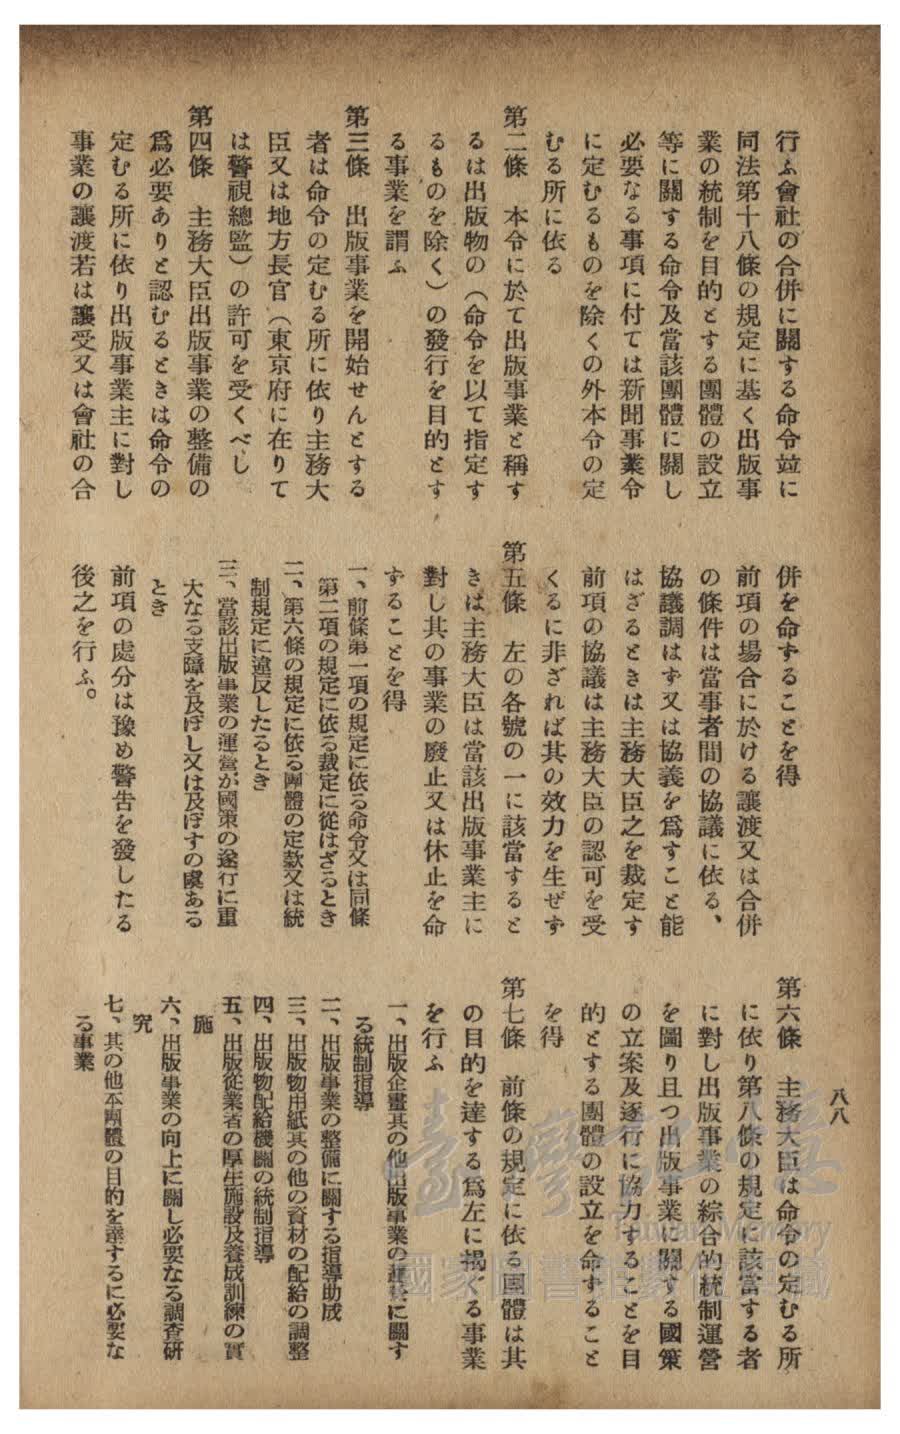 行ふ會社の合併に關する命令竝に
同法第十八條の規定に基く出版事
業の統制を目的とする團體の設立
等に關する命令及當該團體に關し
必要なる事項に付ては新聞事業令
に定むるものを除くの外本令の定
むる所に依る
第二條　本令に於て出版事業と稱す
るは出版物の（命令を以て指定す
るものを除く）の發行を目的とす
る事業を謂ふ
第三條　出版事業を開始せんとする
者は命令の定むる所に依り主務大
臣又は地方長官（東京府に在りて
は警視總監）の許可を受くべし
第四條　主務大臣出版事業の整備の
爲必要ありと認むるときは命令の
定むる所に依り出版事業主に對し
事業の讓渡若は讓受又は會社の合
併を命ずることを得
前項の場合に於ける讓渡又は合併
の條件は當事者間の協議に依る、
協議調はず又は協義を爲すこと能
はざるときは主務大臣之を裁定す
前項の協議は主務大臣の認可を受
くるに非ざれば其の效力を生ぜず
第五條　左の各號の一に該當すると
きは主務大臣は當該出版事業主に
對し其の事業の廢止又は休止を命
ずることを得
一、前條第一項の規定に依る命令又は同條
第二項の規定に依る裁定に從はざるとき
二、第六條の規定に依る團體の定款又は統
制規定に違反したるとき
三、當該出版事業の運營が國策の遂行に重
大なる支障を及ぼし又は及ぼすの虞ある
とき
前項の處分は豫め警告を發したる
後之を行ふ。
八八
第六條　主務大臣は命令の定むる所
に依り第八條の規定に該當する者
に對し出版事業の綜合的統制運營
を圖り且つ出版事業に關する國策
の立案及逐行に協力することを目
的とする團體の設立を命ずること
を得
第七條　前條の規定に依る團體は其
の目的を達する爲左に揭ぐる事業
を行ふ
一、出版企畫其の他出版事業の運營に關す
る統制指導
二、出版事業の整備に關する指導助成
三、出版物用紙其の他の資材の配給の調整
四、出版物配給機關の統制指導
五、出版從業者の厚生施設及養成訓練の實
施
六、出版事業の向上に關し必要なる調査研
究
七、其の他本團體の目的を達するに必要な
る事業
臺灣記憶
Taiwan Memory
國家圖書館數位典藏